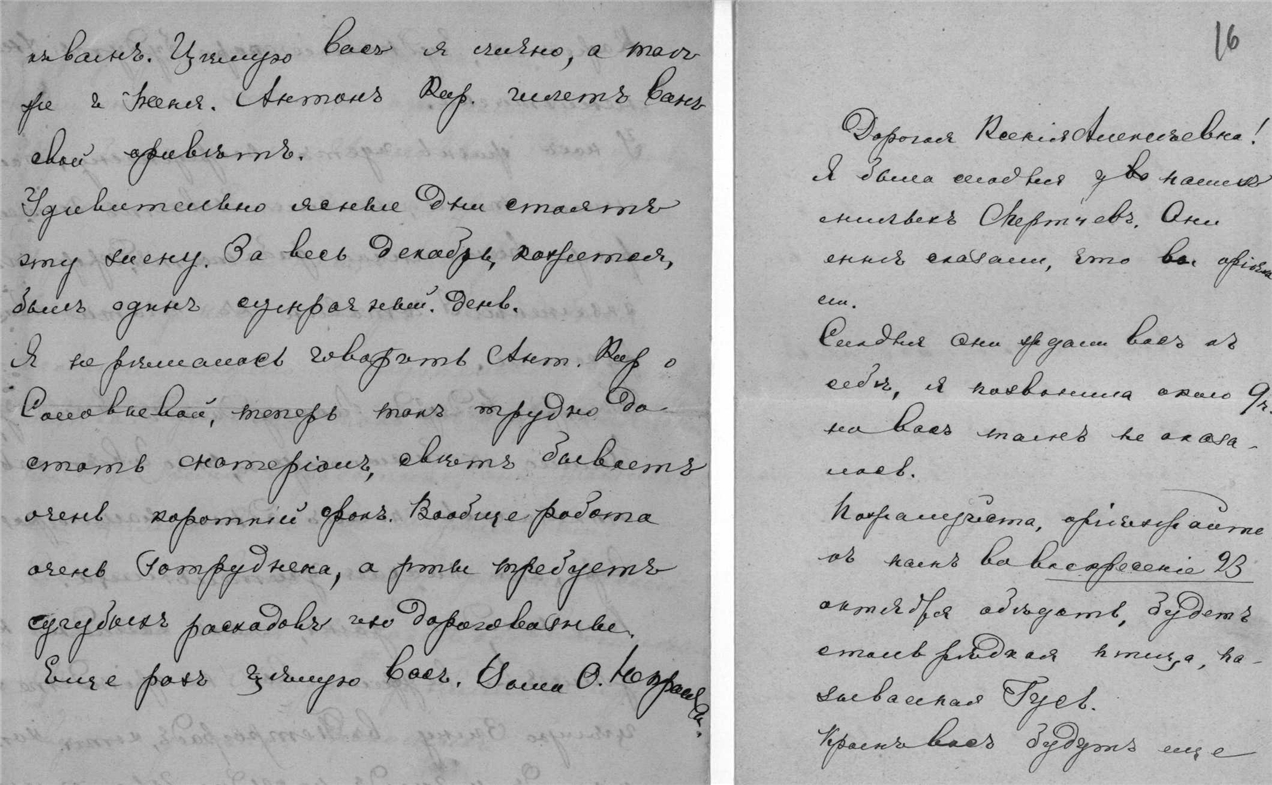 Цѣлую васъ я лично, а так
же и Женя. Антонъ Кар. шлетъ вамъ
свой привѣтъ.
Удивительно ясные дни стоятъ
эту зиму. За весь декабрь, кажется,
былъ одинъ сумрачный день.
Я не рѣшалась говорить Ант. Кар о
Соловьевой, теперь такъ трудно до-
стать матеріалъ, свѣтъ бываетъ
очень короткій срокъ. Вообще работа
очень затруднена, а рты требуетъ
сугубыхъ расходовъ по дороговизнѣ.
Еще разъ цѣлую васъ. Ваша О.
16
Дорогая Ксенія Алексѣевна!
Я была сегодня у нашихъ
милыхъ Они
мнѣ сказали, что вы пріѣха
ли.
Сегодня они ждали васъ къ
себѣ, я позвонила около 9ч.
но васъ тамъ не оказа-
лось.
Пожалуйста, пріѣзжайте
къ намъ во воскресеніе 23
октября обѣдать, будетъ
столь рѣдкая птица, на-
зываемая Гусь.
Кромѣ васъ будутъ еще